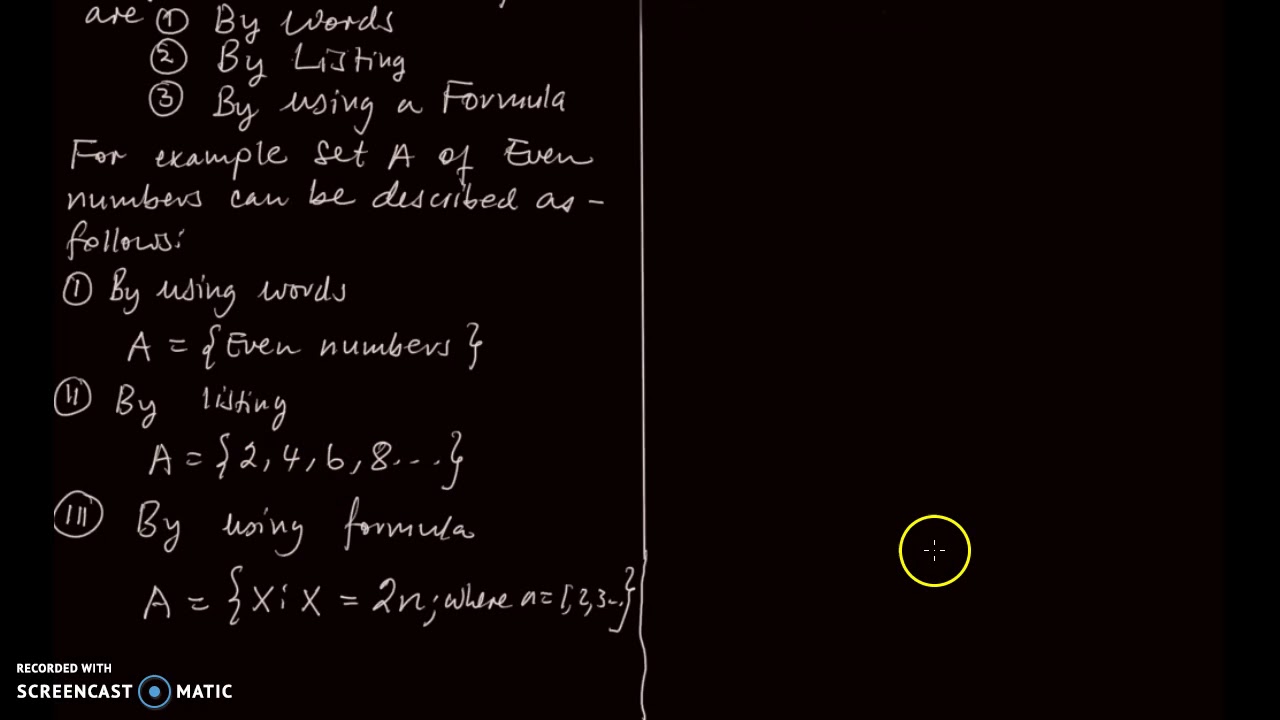 are ① By Words
② By Listing
③ By using a Formula
For example Set A of Even
numbers can be described as -
follows:
Ⓘ By using words
A = {Even numbers}
Ⓘ Ⓘ By listing
A = {2, 4, 6, 8...}
III By using formula
A = {X : X = 2n; where n = 1, 2, 3...}
RECORDED WITH
SCREENCAST MATIC